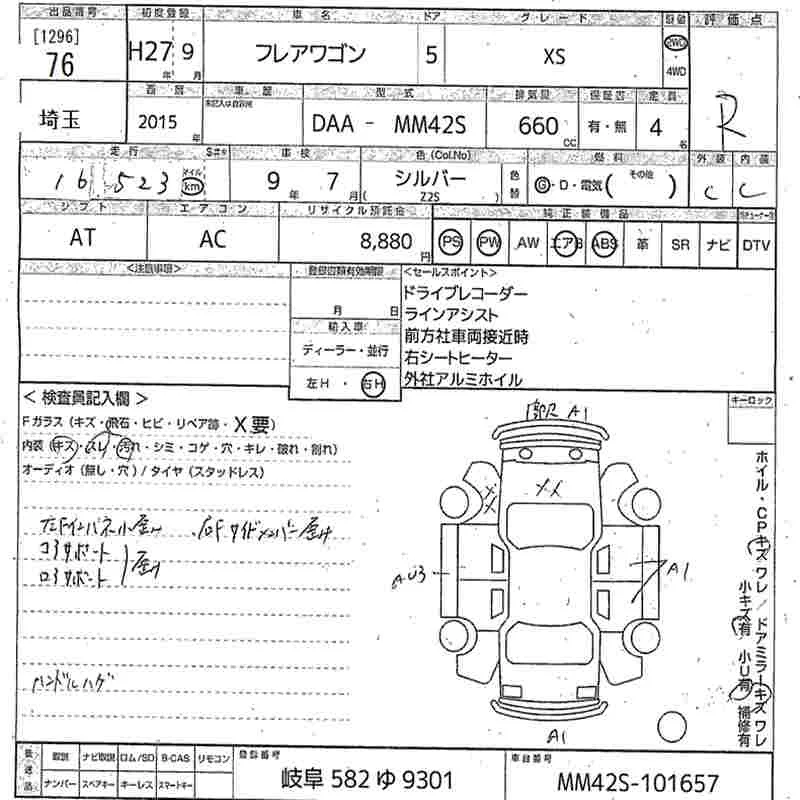 出品番号 初度登録 車名 ドア グレード 駆動 評価点
[1296] 76 H27年 9月 フレアワゴン 5 XS 2WD 4WD R
埼玉
車歴 型式 排気量 保証書 定員
2015年 DAA - MM42S 660cc 有・無 4名
走行 車検 色(Col.No) 燃料 外装 内装
16 523 マイル km 9年 7月 シルバー (Z2S) 色替 G・D・電気 (その他) C C
シフト エアコン リサイクル預託金 純正装備品
AT AC 8,880円 PS PW AW エアB ABS 革 SR ナビ DTV
<注意事項> 登録書類有効期限 <セールスポイント>
月 日
輸入車
ディーラー・並行
左H・右H
ドライブレコーダー
ラインアシスト
前方社車両接近時
右シートヒーター
外社アルミホイル
キーロック
< 検査員記入欄 >
Fガラス (キズ・飛石・ヒビ・リペア跡・X要)
内装 (キズ・スレ・汚れ・シミ・コゲ・穴・キレ・破れ・割れ)
オーディオ (無し・穴) / タイヤ (スタッドレス)
左Fインパネ小歪み 右Fサイドメンバー歪み
コアサポート
ロアサポート 歪み
ハンドルハゲ
A1
XX
XX
AU3
A1
A1
ホイル・CPキズワレ / ドアミラーキズワレ
小キズ有 小U有 補修有
後送品 取説 ナビ取説 ロム/SD B-CAS リモコン
ナンバー スペアキー キーレス スマートキー
登録番号 岐阜 582 ゆ 9301
車台番号 MM42S-101657